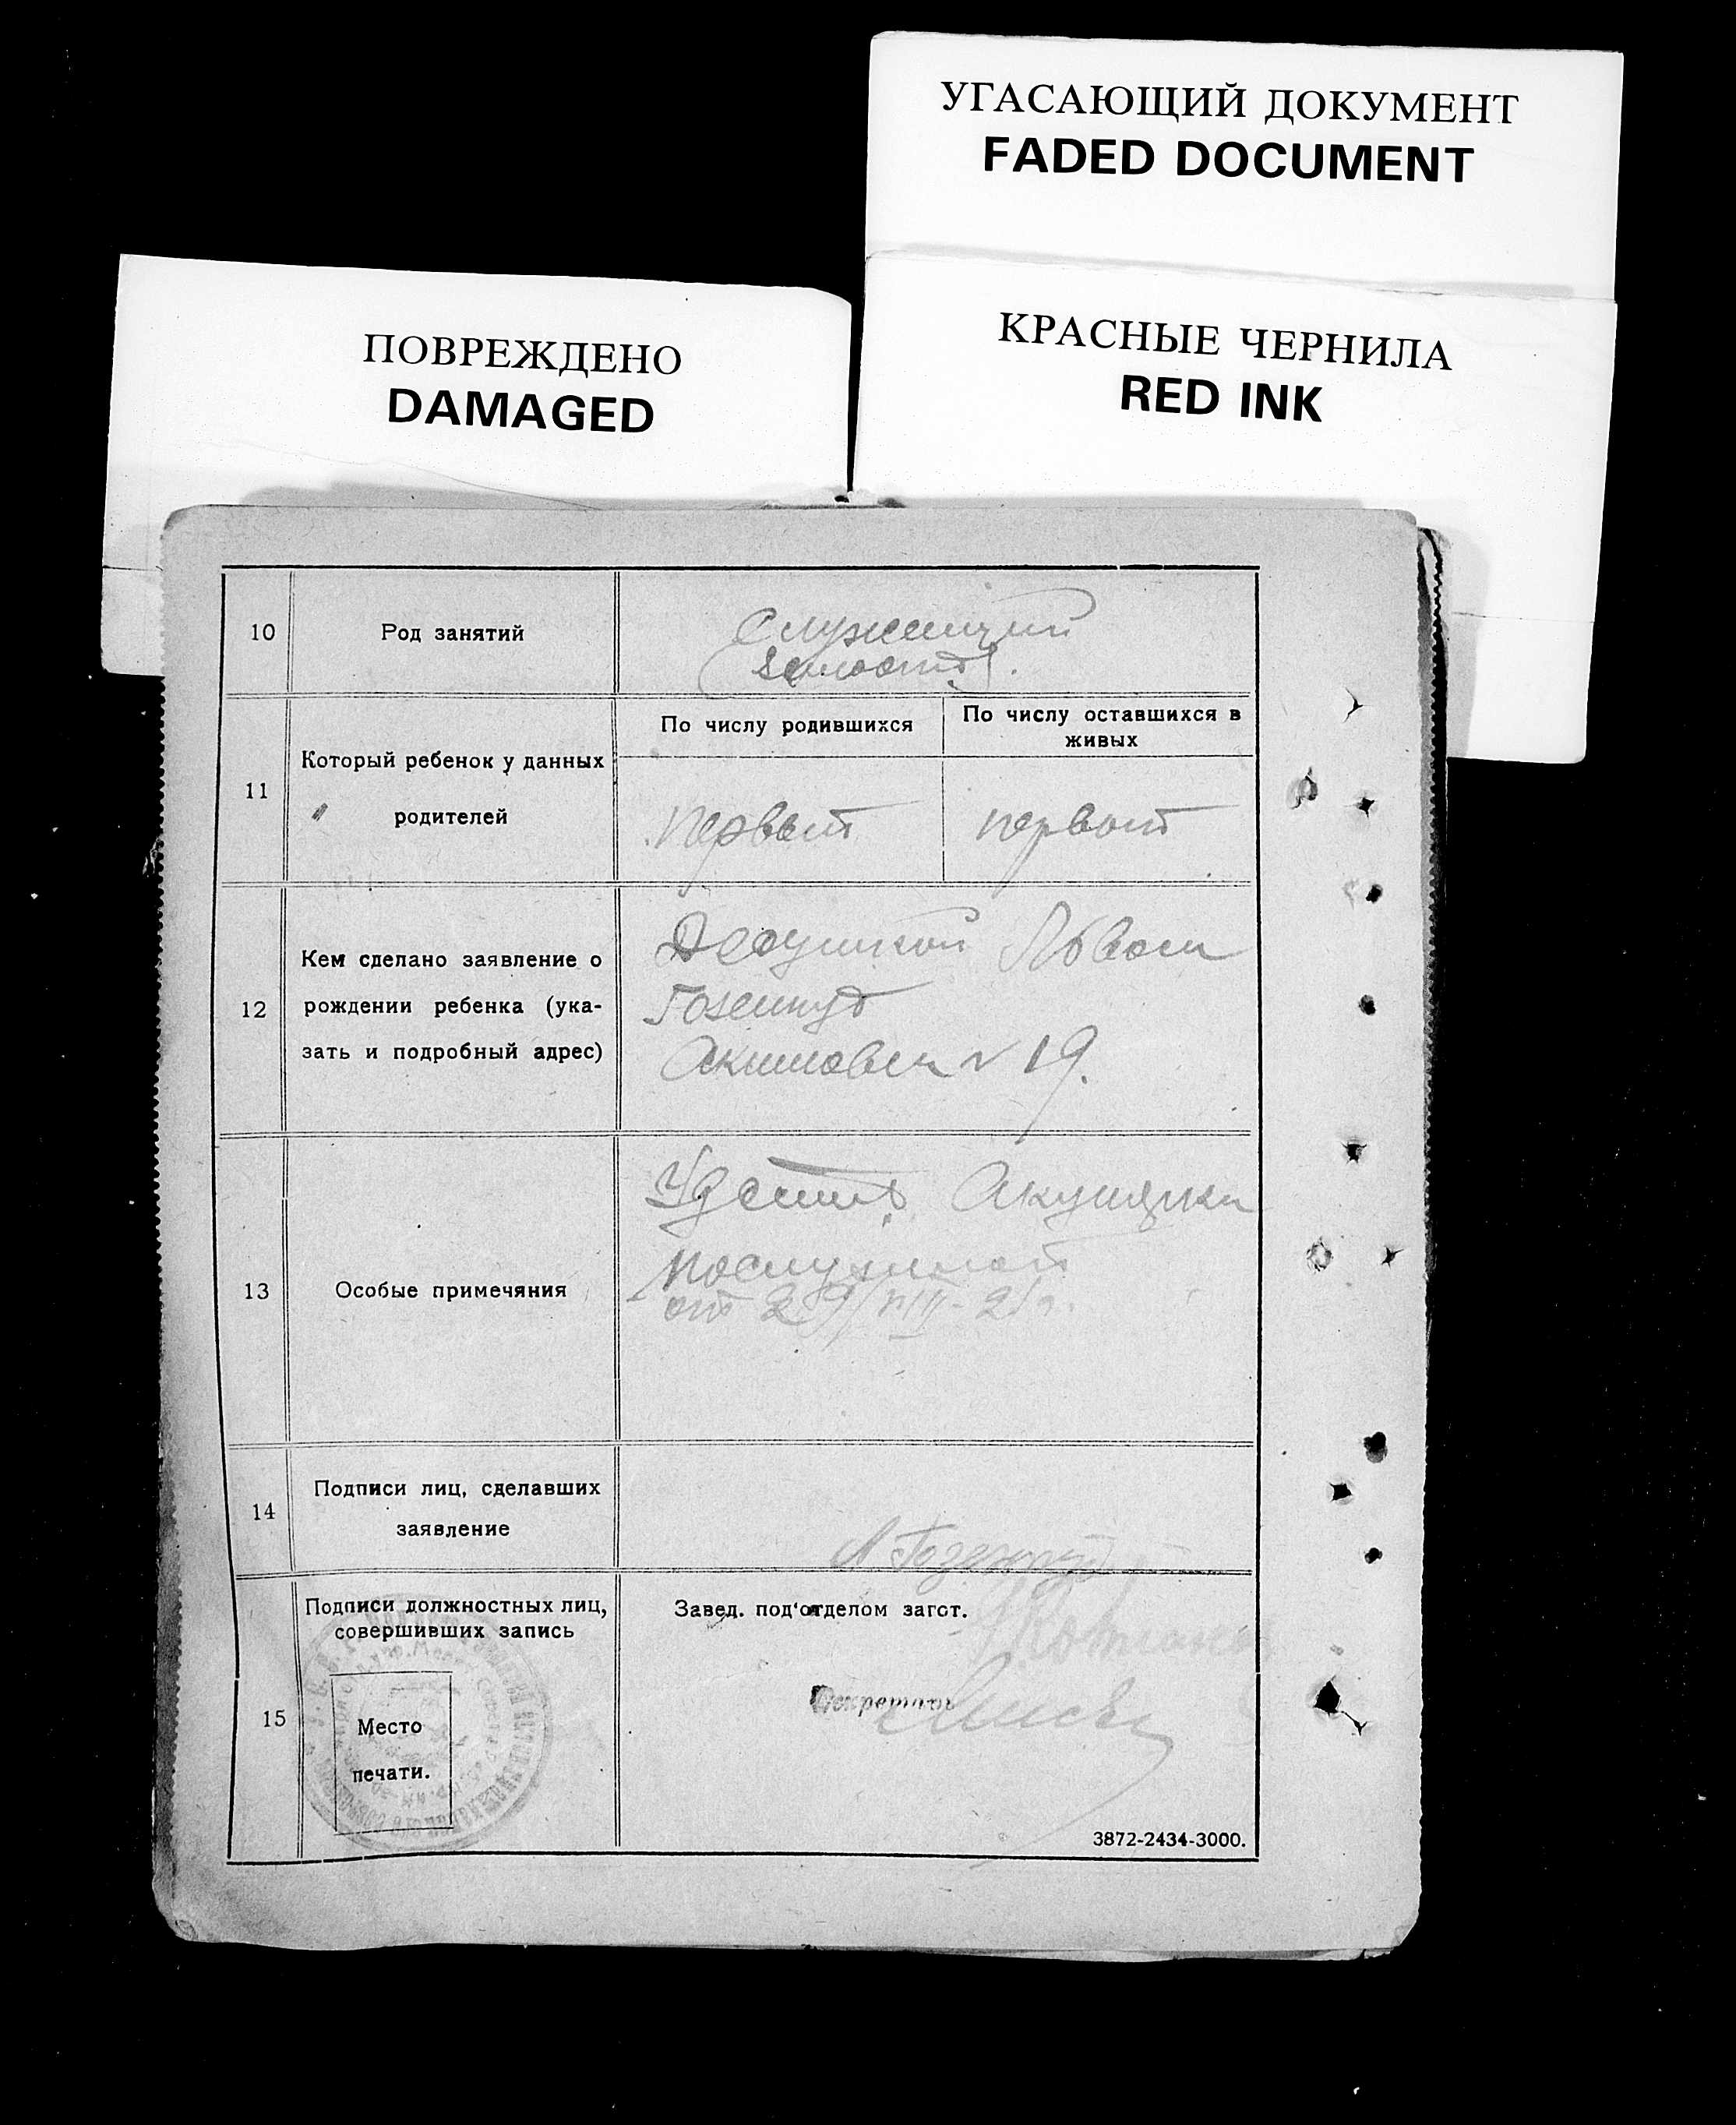 УГАСАЮЩИЙ ДОКУМЕНТ
FADED DOCUMENT
КРАСНЫЕ ЧЕРНИЛА
RED INK
ПОВРЕЖДЕНО
DAMAGED
10
Род занятий
Служащий
11
Который ребенок у данных
родителей
По числу родившихся
По числу оставшихся в
живых
первый
первый
12
Кем сделано заявление о
рождении ребенка (ука-
зать и подробный адрес)
Дедушкой Львом
Гозенпуд
№ 19.
13
Особые примечяния
Удост. Акушерки
от 29/VIII-21г.
14
Подписи лиц, сделавших
заявление
Л Гозенпуд
15
Подписи должностных лиц,
совершивших запись
Место
печати.
Завед. под'отделом загст.
Секретарь
3872-2434-3000.